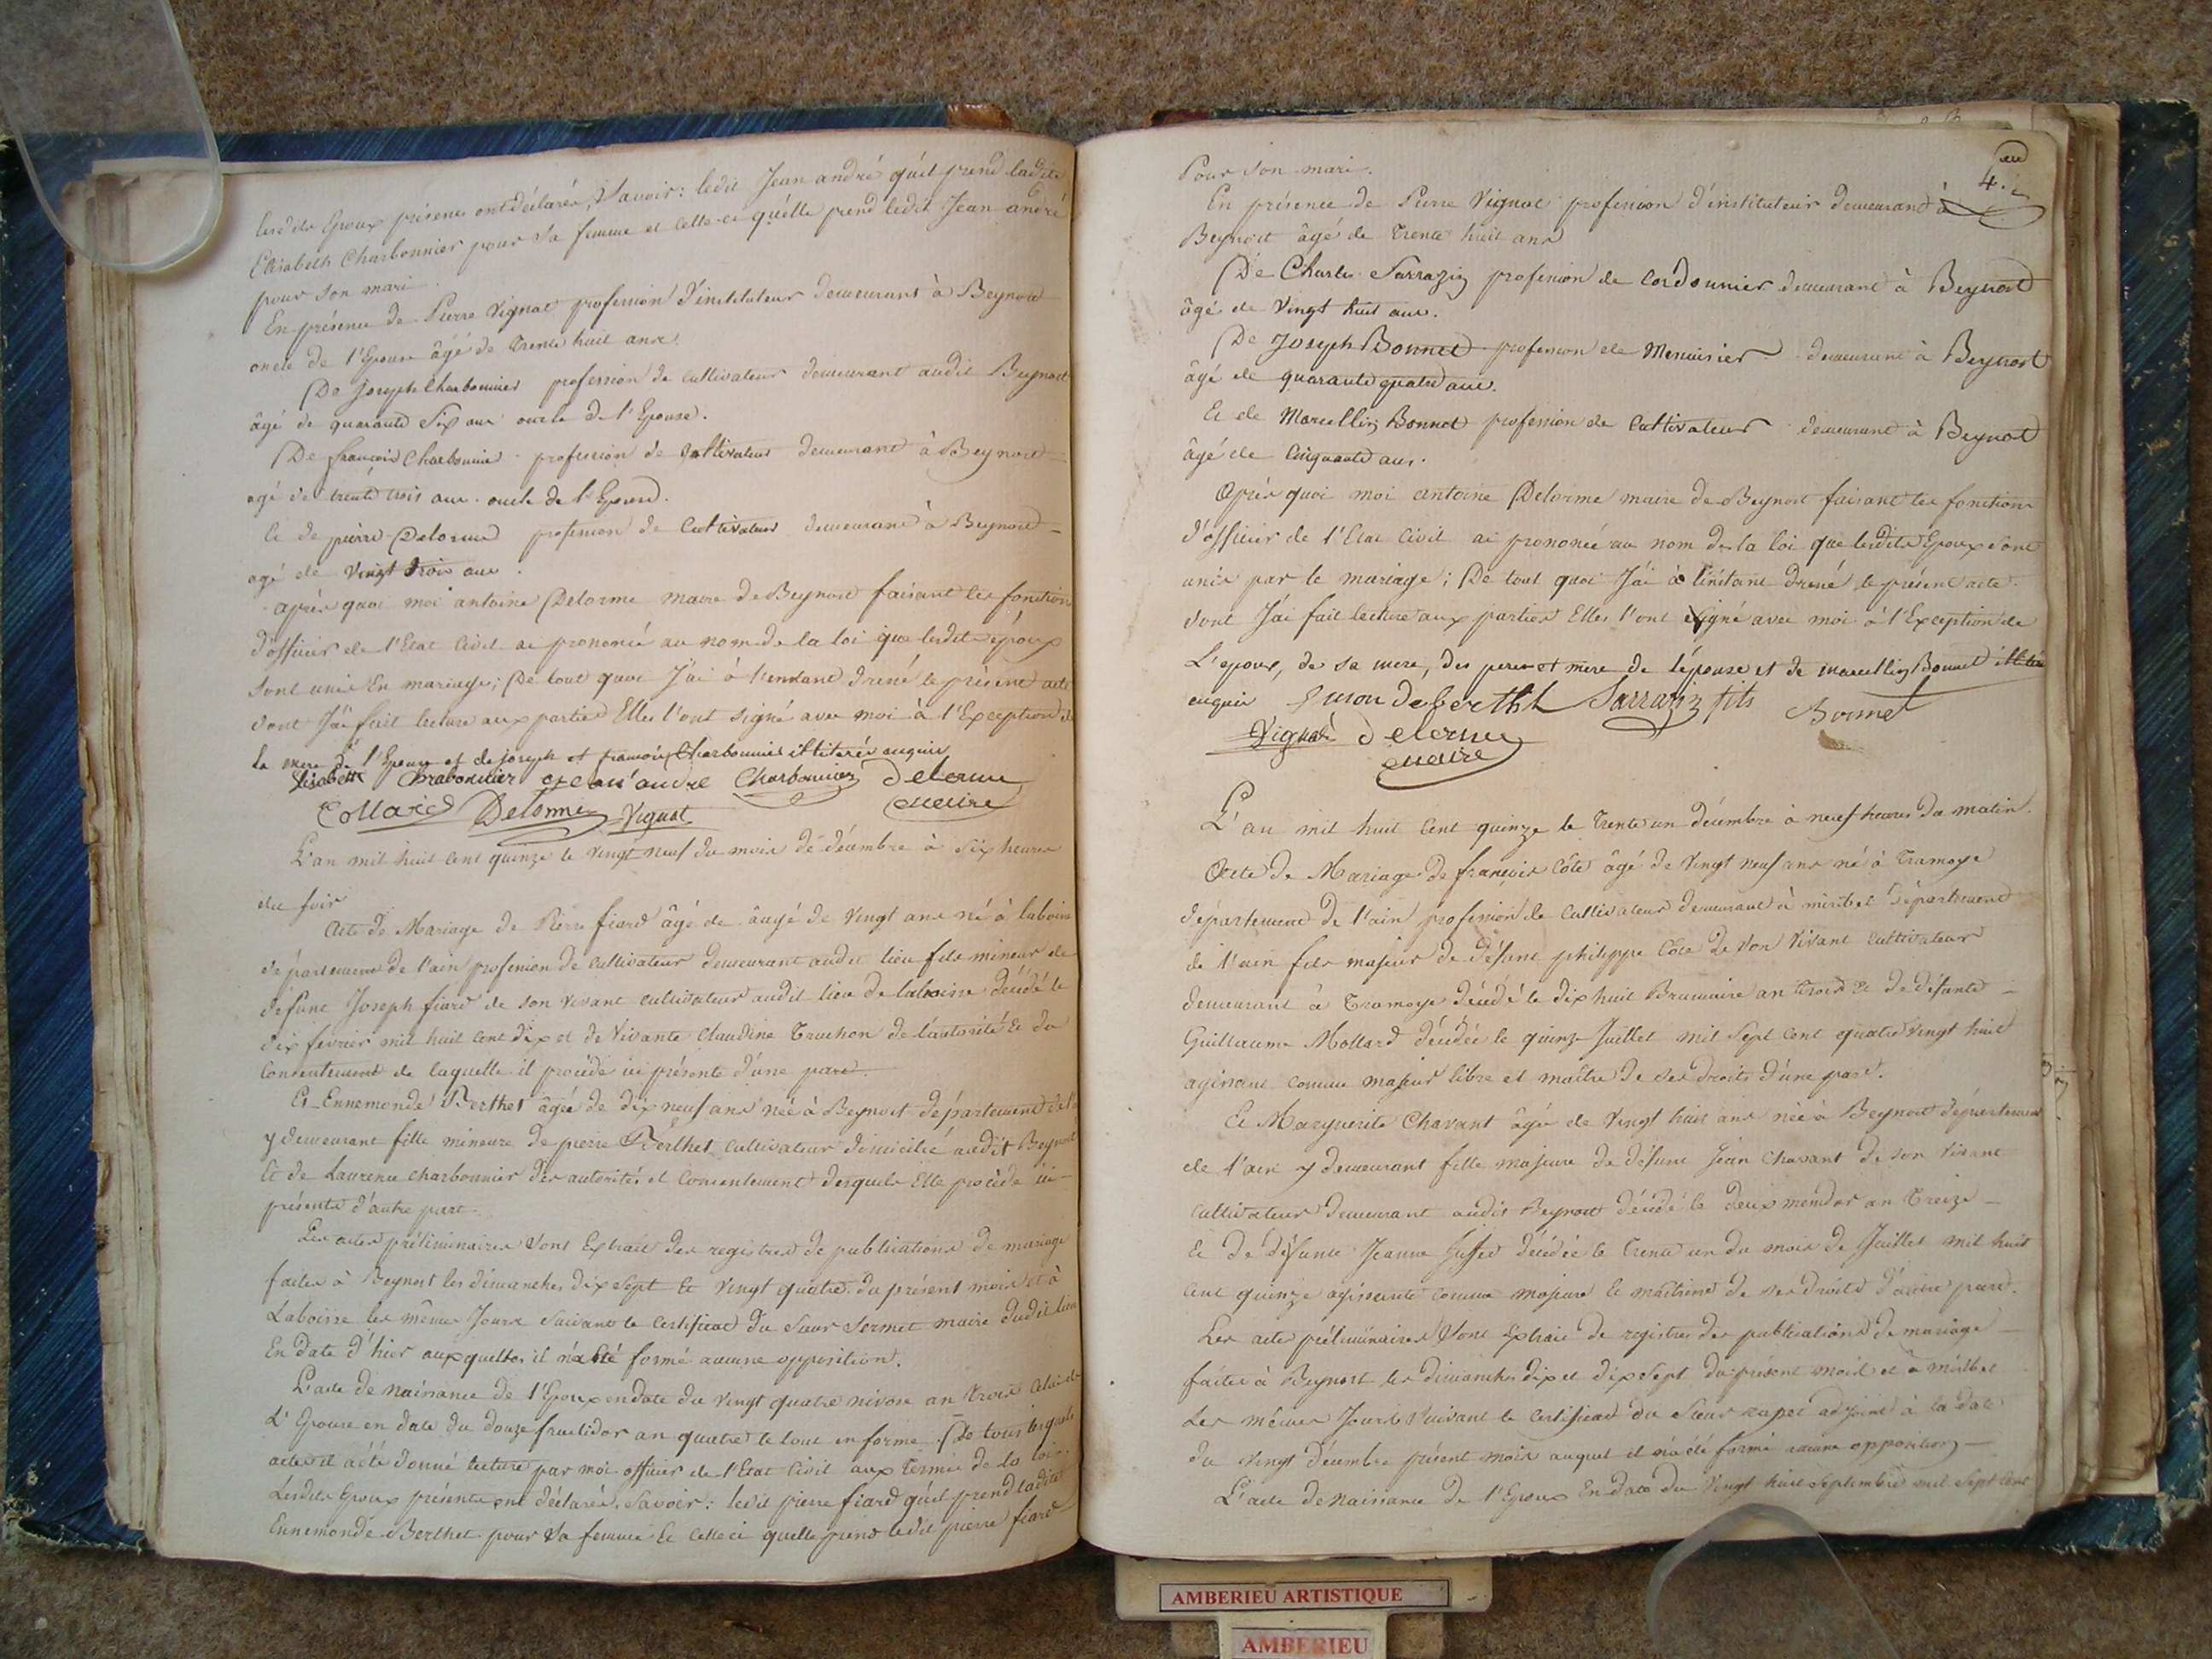 lesdits Epoux présens ont déclarés, Savoir: ledit Jean andré qu'il prend ladite
Elisabeth Charbonnier pour sa femme et Celle-ci qu'elle prend ledit Jean andré
pour son mari.
En présence de Pierre Vignat profession d'instituteur demeurant à Beynost
oncle de l'Epouse âgé de Trente huit ans.
De Joseph Charbonnier profession de cultivateur demeurant audit Beynost
âgé de quarante Six ans oncle de l'Epouse.
De françois Charbonnier profession de Cultivateur demeurant à Beynost
agé de trente trois ans oncle de l'Epouse.
Et de pierre Delorme profession de Cultivateur demeurant à Beynost
agé de Vingt trois ans.
après quoi moi antoine Delorme maire de Beynost faisant les fonctions
d'officier de l'Etat Civil ai prononcé au nom de la loi que lesdits époux
Sont unis En mariage; De tout quoi J'ai à l'instant dressé le présent acte
dont J'ai fait lecture aux parties Elles l'ont signé avec moi à l'Exception de
la mere de l'Epouse et de joseph et françois Charbonnier illiterés enquis
Charbonnier jean andre Charbonnier delorme
Collard Delorme Vignat maire
L'an mil huit Cent quinze le Vingt neuf du mois de décembre à Six heures
du soir
Acte de Mariage de Pierre fiard âgé de âugé de Vingt ans né à laboisse
département de l'ain profession de Cultivateur demeurant audit lieu fils mineur de
défunt Joseph fiard de son vivant cultivateur audit lieu de laboisse décédé le
dix février mil huit cent dix et de Vivante Claudine Truchon de l'autorité Et du
Consentement de laquelle il procède ici présente d'une part.
Et Ennemonde Berthet âgée de dix neuf ans née à Beynost département de l'
y demeurant fille mineure de pierre Berthet Cultivateur domicilié audit Beynost
Et de Laurence Charbonnier des autorités et Consentement desquels Elle procède ici
présents d'autre part.
Les actes préliminaires Sont Extraits des registres de publications de mariage
faites à Beynost les dimanches dix sept Et Vingt quatre du présent mois et à
Laboisse les mêmes Jours Suivant le Certificat du Sieur Sermet maire dudit lieu
En date d'hier auxquelles il n'a été formé aucune opposition.
L'acte de naissance de l'Epoux en date du Vingt quatre nivose an trois Celui de
L'Epouse en date du douze fructidor an quatre le tout en forme. De tous lesquels
actes il a été donné lecture par moi officier de l'Etat Civil aux termes de la loi.
Lesdits Epoux présents ont déclarés, Savoir: ledit pierre fiard qu'il prend ladite
Ennemonde Berthet pour Sa femme Et Celle ci quelle prend ledit pierre fiard
4.
Pour son mari.
En présence de Pierre Vignat profession d'instituteur demeurant à
Beynost âgé de Trente huit ans
De Charles Sarrazin profession de Cordonnier demeurant à Beynost
âgé de Vingt huit ans.
De Joseph Bonnet profession de Menuisier demeurant à Beynost
âgé de quarante quatre ans.
Et de Marcellin Bonnet profession de Cultivateur demeurant à Beynost
âgé de Cinquante ans.
Après quoi moi antoine Delorme maire de Beynost faisant les fonctions
d'officier de l'Etat Civil ai prononcé au nom de la loi que lesdits Epoux Sont
unis par le mariage; De tout quoi J'ai à l'instant dressé le présent acte
dont J'ai fait lecture aux parties Elles l'ont Signé avec moi à l'Exception de
L'epoux, de sa mere, des peres et mere de l'épouse et de marcellin Bonnet
enquis Sarrazin fils Bonnet
Vignat delorme
maire
L'an mil huit Cent quinze le Trente un décembre à neuf heures du matin.
Acte de Mariage de françois Côte âgé de Vingt neuf ans né à Tramoye
département de l'ain profession de Cultivateur demeurant à miribel Département
de l'ain fils majeur de défunt philippe Côte de son Vivant Cultivateur
demeurant à Tramoye décédé le dix huit Brumaire an Trois Et de défunte
Guillauma Mollard décédée le quinze Juillet mil Sept Cent quatre Vingt huit
agissant comme majeur libre et maître de ses droits d'une part.
Et Marguerite Chavant âgée de Vingt huit ans née à Beynost département
de l'ain y demeurant fille majeure de défunt Jean Chavant de son Vivant
Cultivateur demeurant audit Beynost décédé le deux messidor an Treize
Et de défunte Jeanne décédée le Trente un du mois de Juillet mil huit
Cent quinze agissante comme majeure Et maitresse de ses droits d'autre part.
Les actes préliminaires Sont Extraits de registres des publications de mariage
faites à Beynost les dimanches dix et dix Sept du présent mois et à miribel
Les mêmes Jours Suivant le Certificat du Sieur adjoint à la date
du vingt décembre présent mois auquel il n'a été formé aucune opposition
L'acte de naissance de l'Epoux En date du Vingt huit Septembre mil Sept Cent
AMBERIEU ARTISTIQUE
AMBERIEU